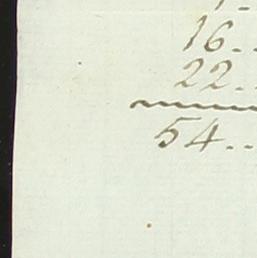 16..
22..
54..